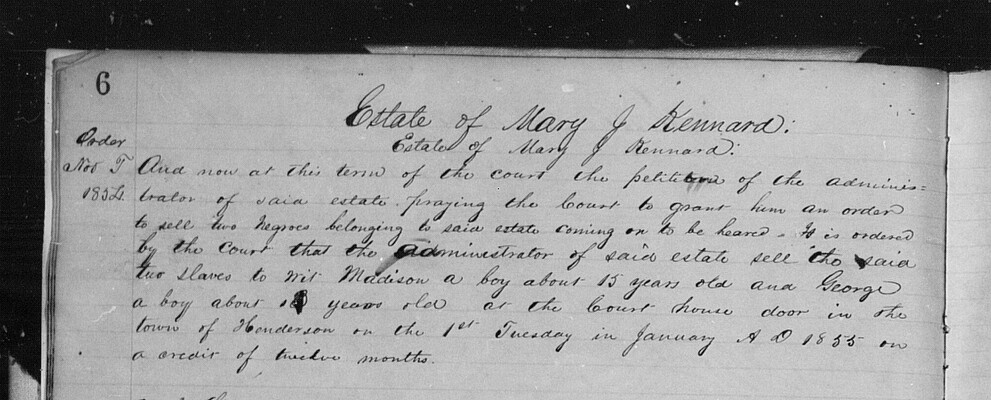 6
Estate of Mary J Kennard:
Estate of Mary J Kennard:
Order
Nov T
1854.
And now at this term of the court the petition of the adminis=
trator of said estate praying the Court to grant him an order
to sell two Negroes belonging to said estate coming on to be heared - It is ordered
by the Court that the administrator of said estate sell the said
two slaves to wit Madison a boy about 15 years old and George
a boy about years old at the Court house door in the
town of Henderson on the 1st Tuesday in January A D 1855 on
a credit of twelve months.